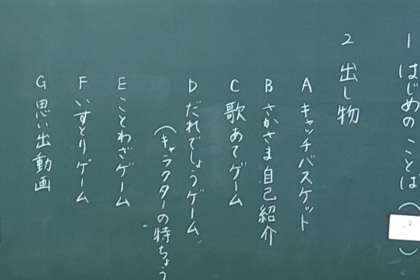 1 はじめのことば（　）
2 出し物
A キャッチバスケット
B さかさま自己紹介
C 歌あてゲーム
D だれでしょうゲーム
（キャラクターの特ちょう
E ことわざゲーム
F いすとりゲーム
G 思い出動画